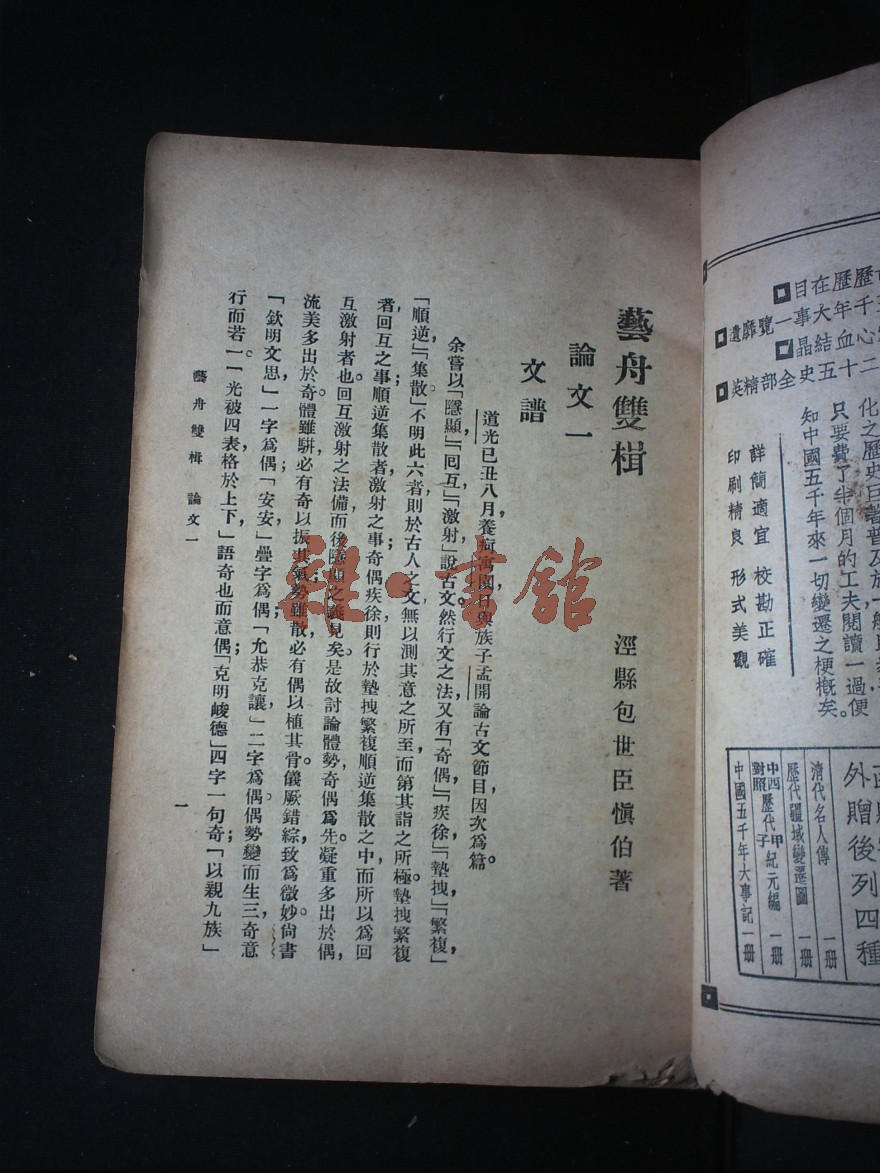 藝舟雙楫
涇縣包世臣愼伯著
論文一
文譜
道光己丑八月養疴寓園日與族子孟開論古文節目因次爲篇。
余嘗以「隱顯」「回互」「激射」說古文然行文之法又有「奇偶」「疾徐」「墊拽」「繁複」
「順逆」「集散」不明此六者則於古人之文無以測其意之所至而第其詣之所極墊拽繁複
者回互之事順逆集散者激射之事奇偶疾徐則行於墊拽繁複順逆集散之中而所以爲回
互激射者也。回互激射之法備而後隱顯之義見矣。是故討論體勢奇偶爲先凝重多出於偶,
流美多出於奇體雖駢必有奇以振其氣勢雖散必有偶以植其骨儀厥錯綜致爲微妙。尙書
「欽明文思」一字爲偶「安安」疊字爲偶「允恭克讓」二字爲偶偶勢變而生三奇意
行而若一。「光被四表格於上下」語奇也而意偶「克明峻德」四字一句奇「以親九族」
藝舟雙楫 論文一
一
雜·書館
目在歷歷
遺靡覽一事大年千
晶結血心
英精部全史五十二
只要費了半個月的工夫閱讀一過便
知中國五千年來一切變遷之梗槪矣。
詳簡適宜 校勘正確
印刷精良 形式美觀
外贈後列四種
清代名人傳 一册
歷代疆域變遷圖 一册
中西對照歷代甲子紀元編 一册
中國五千年大事記 一册